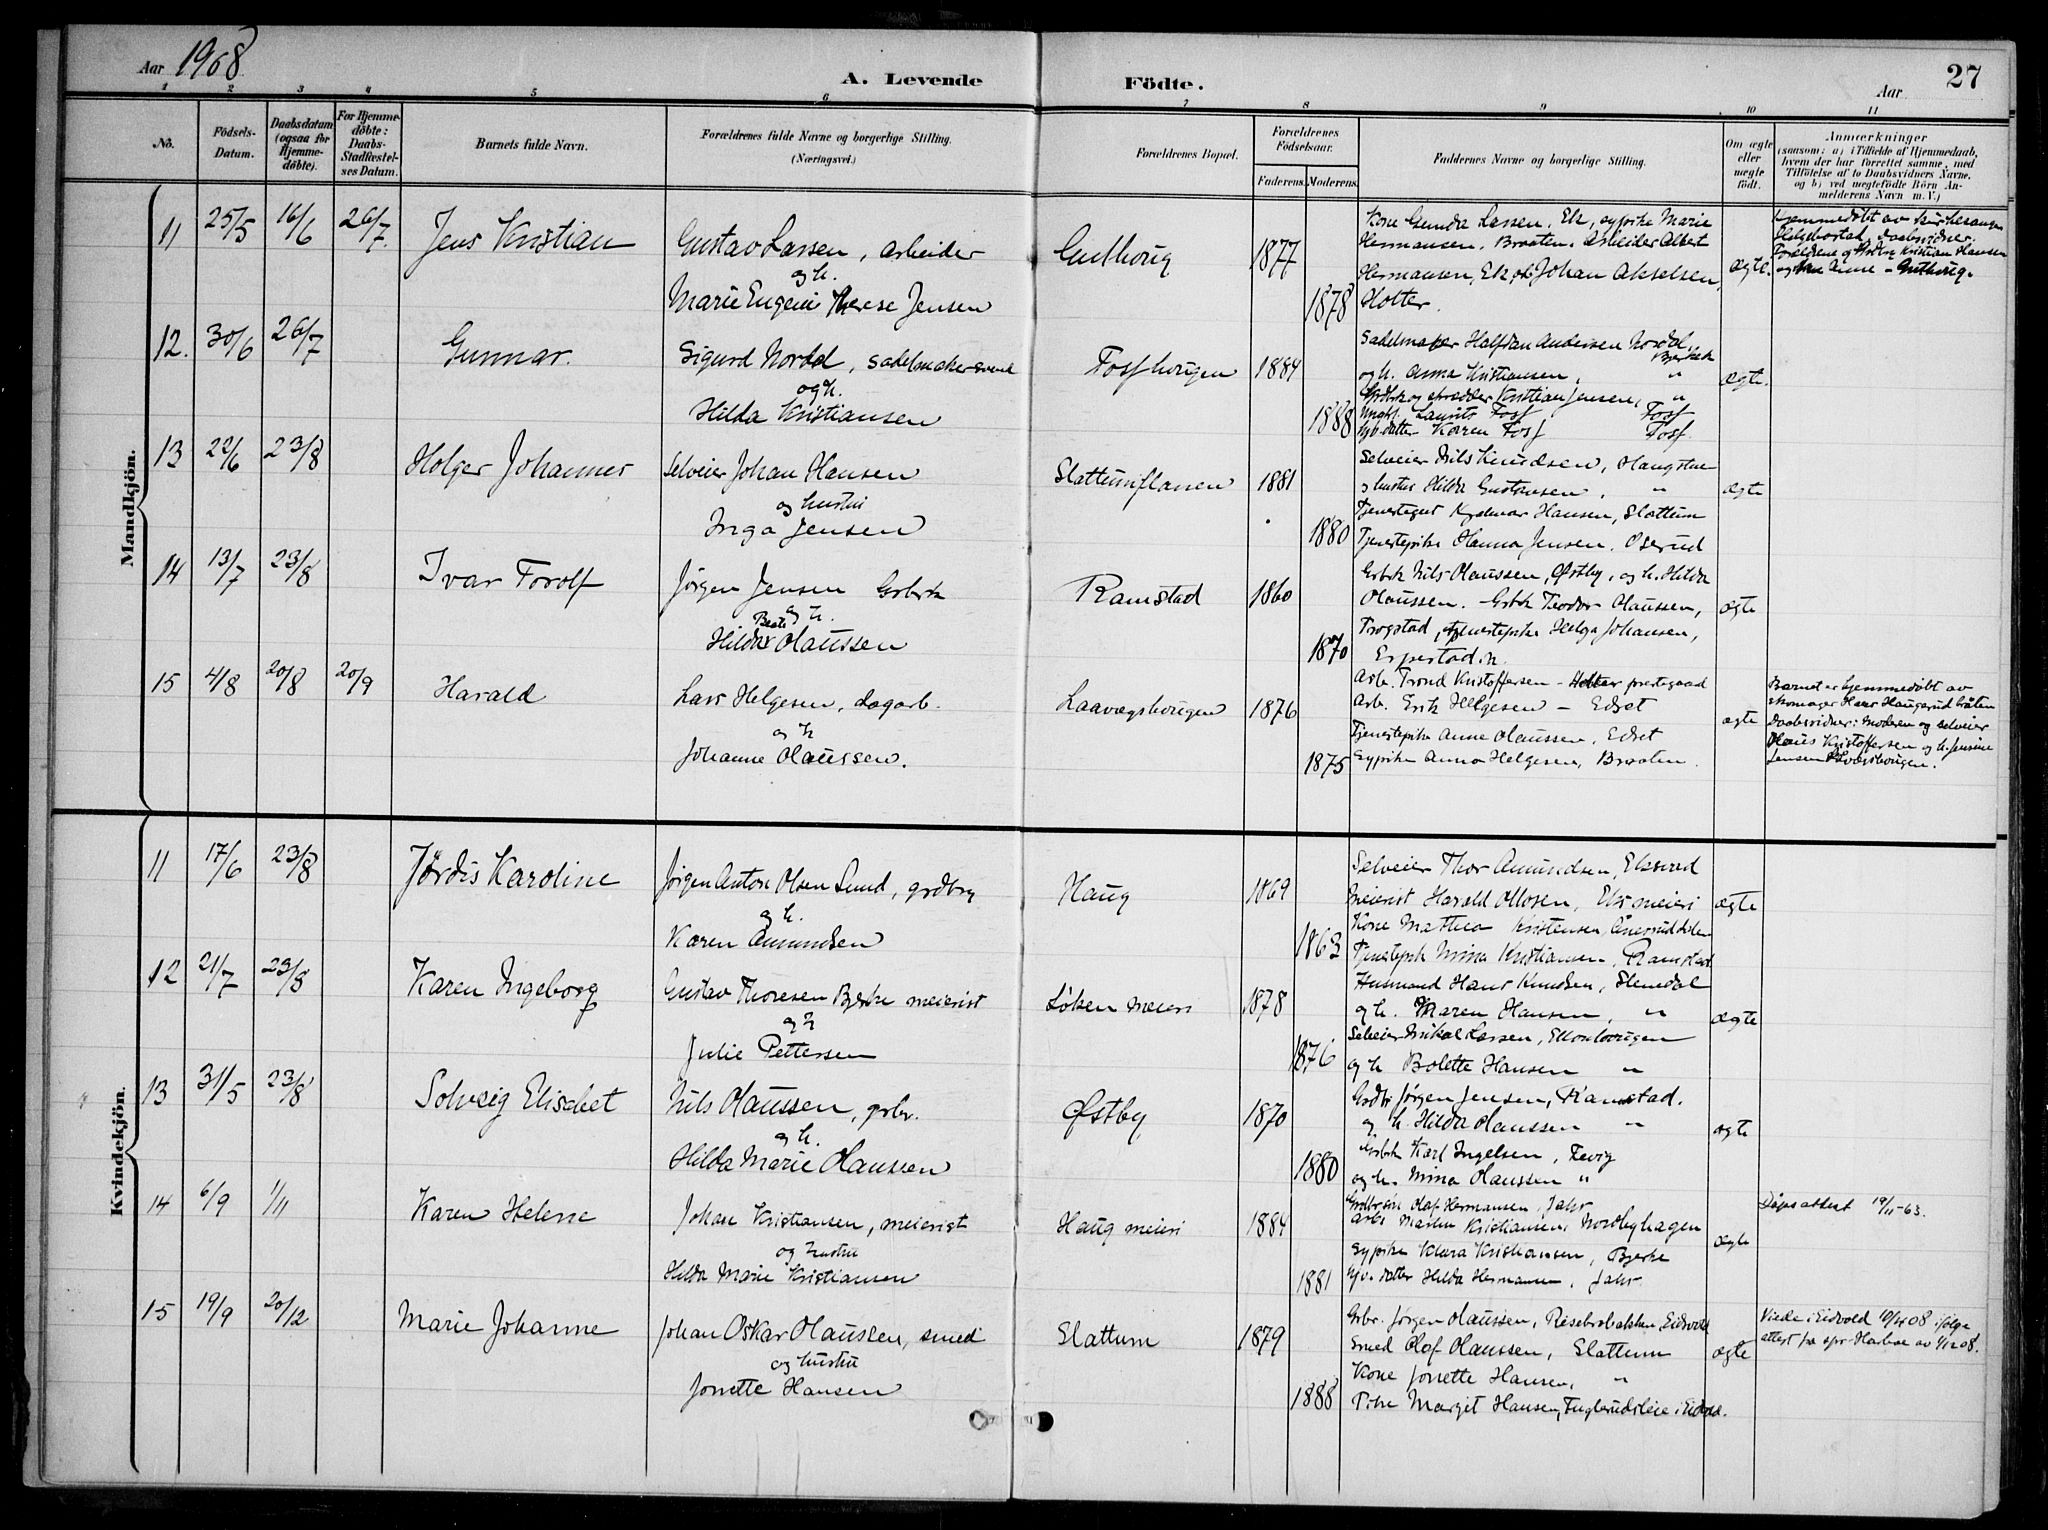 Aar 1908
A. Levende
Födte.
Aar
27
1 2 3 4 5 6 7 8 9 10 11
No.
Födsels-Datum.
Daabsdatum (ogsaa for Hjemme-döbte).
For Hjemme-döbte: Daabs-Stadfæstel-ses Datum.
Barnets fulde Navn.
Forældrenes fulde Navne og borgerlige Stilling. (Næringsvei.)
Forældrenes Bopæl.
Forældrenes Födselsaar.
Faderens. Moderens.
Faddernes Navne og borgerlige Stilling.
Om ægte eller uægte födt.
Anmærkninger
(saasom: a) i Tilfælde af Hjemmedaab, hvem der har forrettet samme, med Tilföielse af to Daabsvidners Navne, og b) ved uegtefödte Börn An-melderens Navn m. V.)
Mandkjön.
11 25/5 16/6 26/7 Jens Kristian
Gustav Larsen, arbeider
og h.
Marie Eugeni Therese Jensen
Gulhoug 1877
1878
Kone Gunda Larsen, Ek, gypike Marie
Hermansen, Braaten, Arbeider Albert
Hermansen, Ek og Johan Akselsen,
Holter.
ægte.
Hjemmedöbt av
Helgebostad, daabsvidner
Forældrene og Kristian Hansen
12. 30/6 26/7 Gunnar.
Sigurd Nordal, sadelmakersvend
og h.
Hilda Kristiansen
Fosshougen 1884
1888
Sadelmaker Halfdan Andersen Nordal, Bjerke
og h. Anna Kristiansen, "
og skrædder Kristian Jensen, "
Ungk. Laurits Foss Foss
Gb. datter Karen Foss Foss
ægte.
13 22/6 23/8 Holger Johannes
Selveier Johan Hansen
og hustru
Inga Jensen
Slattumflanen 1881
1880
Selveier Nils Knudsen, Haugstue
og hustru Hilda Gustavsen, "
Tjenestegut Hansen, Slattum
Tjenestepike Hanna Jensen, Oserud
ægte
14 13/7 23/8 Ivar Torolf
Jörgen Jensen Grbrk
og h.
Hilda Beate Olaussen
Ramstad 1860
1870
Grbrk Nils Olaussen, Østby, og h. Hilda
Olaussen. Grbrk Teodor Olaussen,
Trogstad, tjenestepike Helga Johansen,
ægte
15 4/8 20/8 20/9 Harald
Lars Helgesen, dagarb.
og h
Johanne Olaussen.
Laavegshougen 1876
1875
Arb. Trond Kristoffersen - Holter prestegaard
Arb. Erik Helgesen - Edset
Tjenestepike Anne Olaussen, Edset
Gypike Anna Helgesen, Braaten
ægte
Barnet er hjemmedöbt av
skomager Hans Haugerudbråten
Daabsvidner: moderen og selveier
Olaus Kristoffersen og h. Jensine
Jensen Laavegshougen.
Kvindekjön.
11 17/6 23/8 Jördis Karoline
Jörgen Anton Olsen Lund, grdbrg
og h.
Karen Amundsen
Haug 1869
1863
Selveier Thor Amundsen, Ekserud
Meierist Harald Olosen, Eks meieri
Kone Mathea Kristensen,
Tjenestepik Mina Kristiansen, Ramstad
ægte
12 21/7 23/8 Karen Ingeborg
Gustav Thoresen Bjerke meierist
og h
Julie Pettersen
Löken meieri 1878
1876
Husmand Hans Knudsen, Stenedal
og h. Maren Hansen, "
Selveier Mikal Larsen,
og h Bolette Hansen "
ægte
13 31/5 23/8 Solveig Elisabet
Nils Olaussen, grbr.
og h.
Hilda Marie Olaussen
Østby 1870
1880
Grdbr Jörgen Jensen, Ramstad.
og h. Hilda Olaussen "
Grbrk Karl Ingelsen, Tevig
og h. Mina Olaussen "
ægte
14 6/9 1/11 Karen Helene
Johan Kristiansen, meierist
og hustru
Hilda Marie Kristiansen
Haug meieri 1884
1881
Grdbrsön Olaf Hermansen, Jahr
Arb. Martin Kristiansen, Nordbyhagen
Gypike Klara Kristiansen, Bjerke
Gb. datter Hilda Hermansen, Jahr.
ægte
Dåpsattest 19/11-63.
15 19/9 20/12 Marie Johanne
Johan Oskar Olaussen, smed
og hustru
Jonette Hansen
Slattum 1879
1888
Grbr. Jörgen Olaussen, Risebrobakken, Eidsvold
Smed Olof Olaussen, Slattum
Kone Jonette Hansen, "
Pike Margit Hansen, Fuglerudsleie i Eidsvold.
ægte
Viede i Eidsvold 08 ifölge
attest fra spr. Harboe av 08.